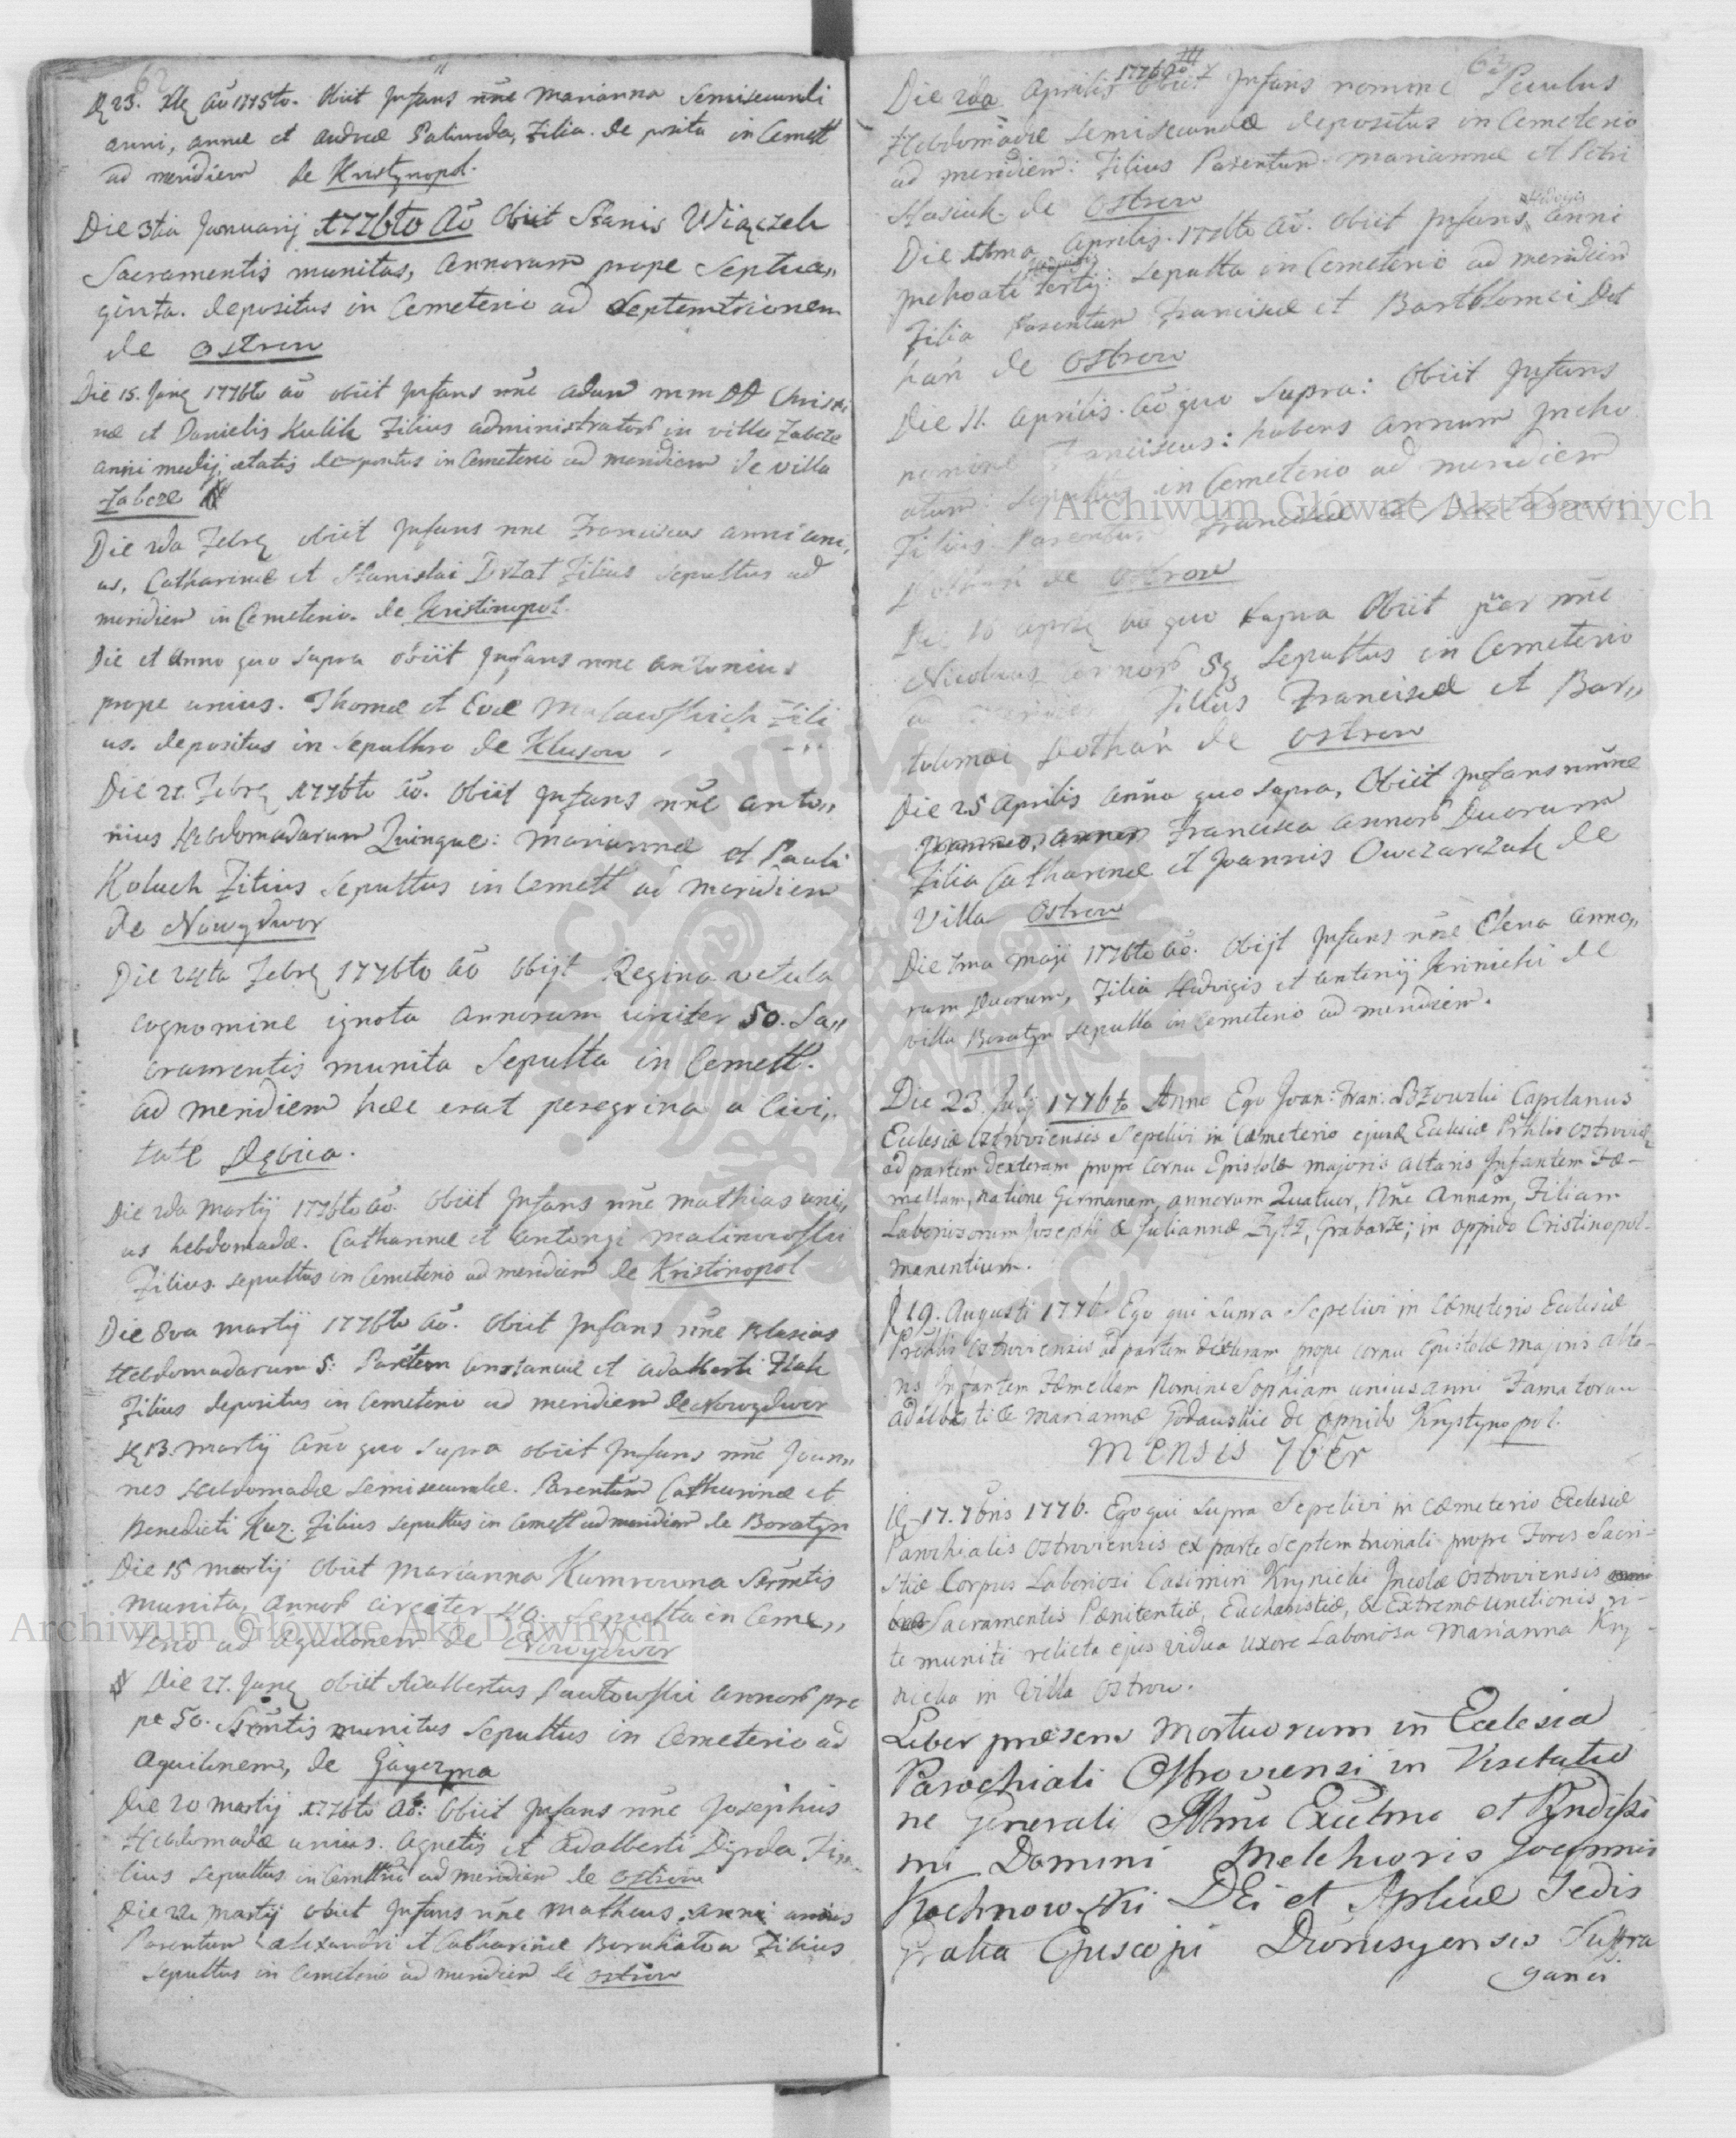 62
D 23. Xbr Aō 1775to. Obiit Infans nñe Marianna Semisecundi
anni, Annæ et Andreæ Filia. de posita in Cemett
ad meridiem de Kristynopol.
Die 3tia Januarij 1776to Aō Obiit Stanis Wiączek
Sacramentis munitus, annorum prope Septua„
ginta. depositus in Cemeterio ad Septemtrionem
de Ostrow
Die 15. 1776to aō obiit Infans nñe Adam
næ et Danielis Kulik Filius administrator in villa Zabcze
anni medij ætatis depositus in Cemeterio ad meridiem de villa
Zabcze
Die 2da Febr obiit Infans nñe Franciscus anni uni,
us, Catharinæ et Stanislai Filius sepultus ad
meridiem in Cemeterio. de Kristinopol.
Die et Anno quo supra obiit Infans nñe Antonius
prope unius. Thomæ et Evæ Fili
us. depositus in sepulchro de Klusow
Die 21. Febr 1776to aō. Obiit Infans nñe Anto„
nius Hebdomadarum Quinque: Mariannæ et Pauli
Koluch Filius Sepultus in Cemett ad meridiem
de Nowydwor
Die 24ta Febr 1776to aō Obijt Regina vetula
cognomine ignota annorum circiter 50. Sa„
cramentis munita Sepulta in Cemett.
ad meridiem hæc erat peregrina a Civi„
tate Dębica.
Die 2da Martij 1776to aō. Obiit Infans nñe Mathias uni„
us hebdomadæ. Catharinæ et Antonij Malinowski
Filius. sepultus in Cemeterio ad meridiem de Kristinopol
Die 8va Martij 1776to aō. Obiit Infans nñe Blasius
Hebdomadarum 5: Parentum Constanciæ et Adalberti
Filius depositus in Cemeterio ad meridiem de Nowydwor
D 13. Martij Año quo supra obiit Infans nñe Joann„
nes Hebdomadæ semisecundæ. Parentum Catharinæ et
Benedicti Kuz. Filius sepultus in Cemett ad meridiem de Boratyn
Die 15 Martij Obiit Marianna Kumrowna Srmtis
munita, annor circiter 40. Sepulta in Ceme„
terio ad Aquilonem de Nowydwor
Die 27. obiit Adalbertus Pautowski annor pro
pe 50. Srmtis munitus Sepultus in Cemeterio ad
Aquilonem, de
Die 20 Martij 1776to aō: Obiit Infans nñe Josephus
Hebdomadæ unius. Agnetis et Adalberti Dyrda Fi
lius sepultus in Cemettrio ad meridiem de Ostrow
Die Martij obiit Infans nñe Matheus anni unius
Parentum Alexandri et Catharinæ Filius
Sepultus in Cemeterio ad meridiem de Ostrow
63
Die 2da Aprilis 1776 aō Obiit Infans nomine Paulus
Hebdomadæ semisecundæ depositus in Cemeterio
ad meridiem: Filius Parentum Mariannæ et Petri
Stasiuk. de Ostrow
Die Aprilis. 1776to aō. Obiit Infans Hedvigis anni
inchoati tertij: sepulta in Cemeterio ad meridiem
Filia Parentum Franciscæ et Bartholomei Dot
hań de Ostrow
Die 11. Aprilis. aō quo supra: Obiit Infans
nomine Franciscus: habens annum Incho
atum: Sepultus in Cemeterio ad meridiem
Filius Parentum Franciscæ et Bartolomei
Dothań de Ostrow
Die 16 Apr aō quo supra Obiit puer nñe
Nicolaus annor 5 Sepultus in Cemeterio
ad meridiem Filius Franciscæ et Bar„
tolomei Dothań de Ostrow
Die 25 Aprilis anño quo supra, Obiit Infans nñne
Francisca annor Duorum
Filia Catharinæ et Joannis Owczarczak de
Villa Ostrow
Die 1ma Maji 1776to aō. Obijt Infans nñe Elena anno„
rum Duorum, Filia Hedvigis et Antonij Krinicki de
villa Boratyn sepulta in Cemeterio ad meridiem.
Die 23. Julij 1776to Anno Ego Joan: Fran: Bżowzki Capelanus
Eclesiæ Ostroviensis Sepelivi in Cæmeterio ejusd Eclesiæ Prhlis Ostrovien
ad partem dexteram prope Cornu Epistolæ majoris Altaris Infantem Fæ-
mellam, natione Germanam, annorum Quatuor, Nñe Annam, Filiam
Laboriosorum Josephi & Juliannæ Zytz, Grabarze; in oppido Cristinopol-
manentium.
D 19. Augusti 1776. Ego qui supra Sepelivi in Cæmeterio Ecclesiæ
Prchlis Ostroviensis ad partem dexteram prope Cornu Epistolæ Majoris Alta-
ris Infantem Fæmellam Nomine Sophiam unius anni Famatorum
Adalberti & Mariannæ de oppido Krystynopol.
Mensis 7bēr
D 17. 7bris 1776. Ego qui supra Sepelivi in Cæmeterio Ecclesiæ
Parochialis Ostroviensis ex parte Septemtrionali prope Fores Sacri-
stiæ Corpus Laboriosi Casimiri Krynicki Incolæ Ostroviensis
Sacramentis Pænitentiæ, Eucharistiæ, & Extremæ unctionis ri-
te muniti relicta ejus vidua uxore Laboriosa Marianna Kry-
nicka in Villa Ostrow.
Liber præsens Mortuorum in Ecclesia
Parochiali Ostroviensi in Visitatio
ne Generali Illmi Excellmi et Rvndissi
mi Domini Melchioris Joannis
Kochnowski DEi et Aplicæ Sedis
Gratia Episcopi Dionisyensis Suffra
ganei
Archiwum Główne Akt Dawnych
Archiwum Główne Akt Dawnych